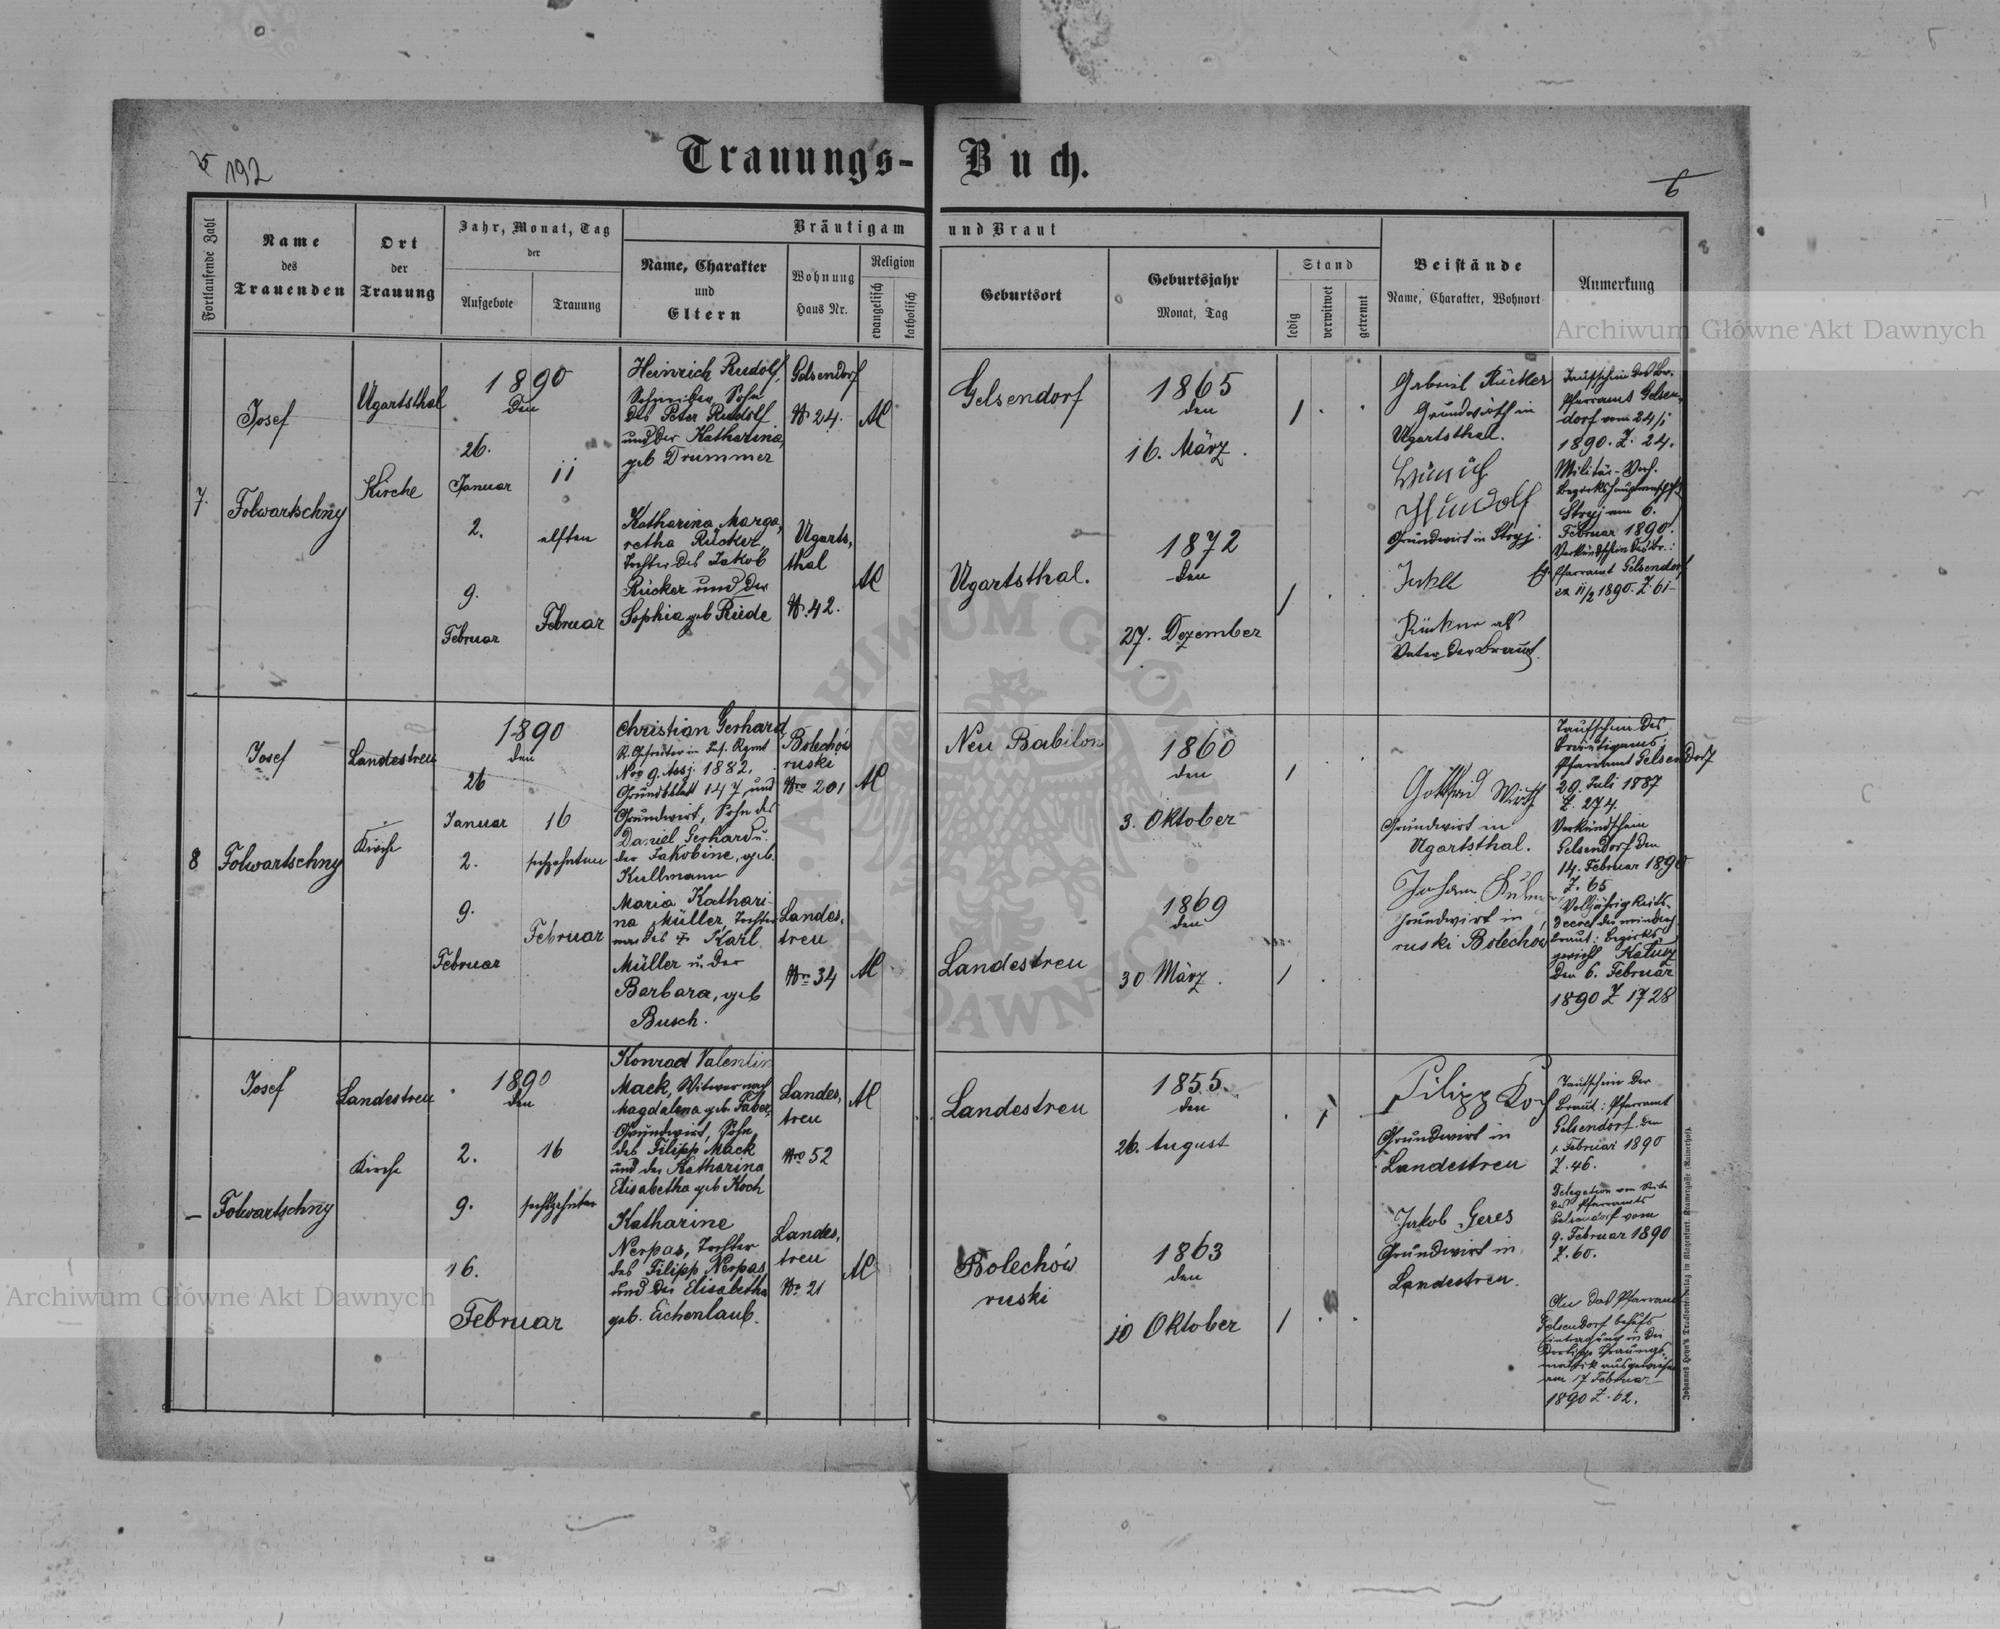 192
Trauungs-Buch.
6
Fortlaufende Zahl
Name
des
Trauenden
Ort
der
Trauung
Jahr, Monat, Tag
der
Aufgebote
Trauung
Bräutigam und Braut
Name, Charakter
und
Eltern
Wohnung
Haus Nr.
Religion
evangelisch
katholisch
Geburtsort
Geburtsjahr
Monat, Tag
Stand
ledig
verwitwet
getrennt
Beistände
Name, Charakter, Wohnort
Anmerkung
Archiwum Główne Akt Dawnych
7.
Josef
Folwartschny
Ugartsthal
Kirche
1890
den
26.
Januar
2.
9.
Februar
11
elften
Februar
Heinrich Rudolf,
Sohn
des Peter Rudolf
und der Katharina
geb Drummer
Gelsendorf
N 24.
Gelsendorf
1865
den
16. März.
1
Katharina Marga,
retha Rücker
Tochter des Jakob
Rücker und der
Sophia geb Rüde
Ugarts,
thal
N. 42.
Ugartsthal.
1872
den
27. Dezember
1
Gabriel Rücker
Grundwirth in
Ugartsthal.
Grundwirt in Stryj.
als
Vater der Braut.
Taufschein des
Pfarramt Gelsen,
dorf vom 24/1
1890. Z. 24.
Militär-
Bezirkshauptmannschaft
Stryj am 6.
Februar 1890.
Pfarramt Gelsendorf
11/2 1890. Z. 61
8
Josef
Folwartschny
Landestreu
Kirche
1890
den
26
Januar
2.
9.
Februar
16
sechzehnten
Februar
Christian Gerhard,
Nro 9. Assj. 1882.
Grundblatt 147 und
Grundwirt, Sohn des
Daniel Gerhard u.
der Jakobine, geb.
Kullmann
Bolechów
ruski
Nro 201
Neu Babilon
1860
den
3. Oktober
1
Maria Kathari-
na Müller, Tochter
des Karl
Müller u. der
Barbara, geb
Busch.
Landes,
treu
Nro 34
Landestreu
1869
den
30 März.
1
Gottfried Wirth
Grundwirt in
Ugartsthal.
Johann
Grundwirt in
ruski Bolechów
Taufschein des
Bräutigams:
Pfarramt Gelsendorf
20. Juli 1887
Z. 274.
Verkündschein
Gelsendorf den
14. Februar 1890
Z. 65
Volljährigkeits-
Decret der
Braut: Bezirks-
gericht Kałusz
den 6. Februar
1890 Z 1728
Josef
Folwartschny
Landestreu
Kirche
1890
den
2.
9.
16.
Februar
16
sechzehnten
Konrad Valentin
Mack, Witwer nach
Magdalena geb. Faber,
Grundwirt, Sohn
des Filipp Mack
und der Katharina
Elisabetha geb Koch
Landes,
treu
Nro 52
Landestreu
1855.
den
26. August
1
Katharine
Nerpas, Tochter
des Filipp Nerpas
und der Elisabetha
geb. Eichenlaub.
Landes,
treu
No 21
Bolechów
ruski
1863
den
10 Oktober
1
Filipp Koch
Grundwirt in
Landestreu
Jakob Geres
Grundwirt in
Landestreu.
Taufschein der
Braut: Pfarramt
Gelsendorf den
1. Februar 1890
Z. 46.
Delegation von Seite
des Pfarramts
Gelsendorf vom
9. Februar 1890
Z. 60.
An das Pfarramt
Gelsendorf behufs
Eintragung in die
dortige Trauungs-
matrik ausgewiesen
am 17 Februar
1890 Z. 62.
Archiwum Główne Akt Dawnych